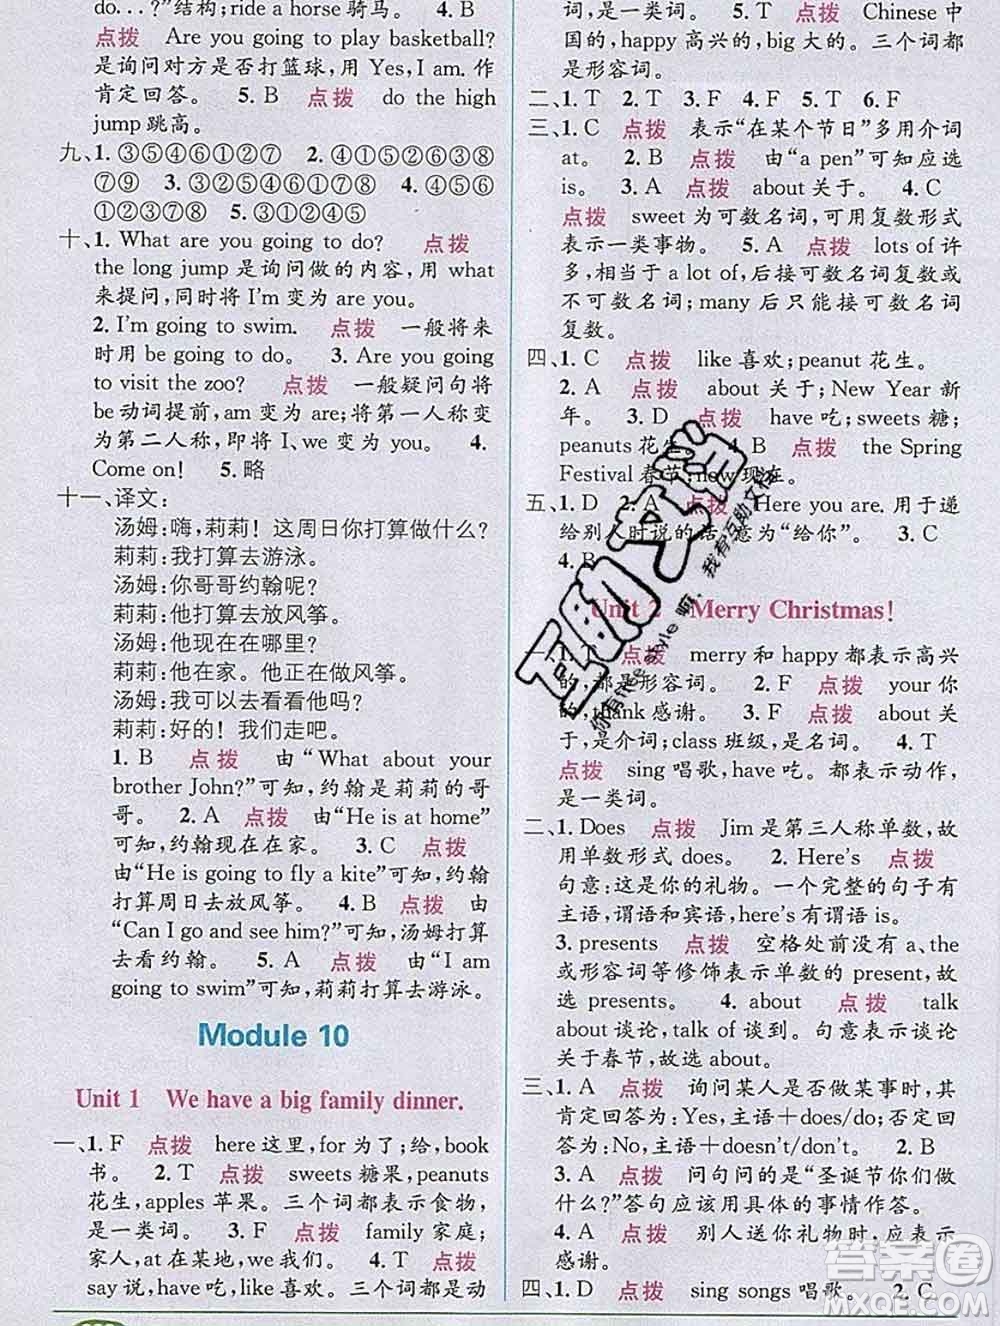 do. . . ?”结构;ride a horse 骑马。 4. B
点拨 Are you going to play basketball?
是询问对方是否打篮球,用 Yes,I am. 作
肯定回答。 5. B 点拨 do the high
jump 跳高。
九、1. ③⑤④⑥①②⑦ 2. ④①⑤②⑥③⑧
⑦⑨ 3. ③⑤②④⑦①⑥⑧ 4. ⑥③⑤④
①②⑦ 5. ③①②④⑤
十、1. What are you going to do? 点拨
the long jump 是询问做的内容,用 what
来提问,同时将 I'm 变为 are you。
2. I'm going to swim. 点拨 一般将来
时用 be going to do。 3. Are you going
to visit the zoo? 点拨 一般疑问句将
be 动词提前,am 变为 are;将第一人称变
为第二人称,即将 I、we 变为 you。 4.
Come on! 5. 略
十一、译文:
汤姆:嗨,莉莉! 这周日你打算做什么?
莉莉:我打算去游泳。
汤姆:你哥哥约翰呢?
莉莉:他打算去放风筝。
汤姆:他现在在哪里?
莉莉:他在家。他正在做风筝。
汤姆:我可以去看看他吗?
莉莉:好的! 我们走吧。
1. B 点拨 由“What about your
brother John?”可知,约翰是莉莉的哥
哥。 2. A 点拨 由“He is at home”
可知,约翰现在在家。 3. C 点拨
由“He is going to fly a kite”可知,约翰
打算周日去放风筝。 4. B 点拨 由
“Can I go and see him?”可知,汤姆打算
去看约翰。 5. A 点拨 由“I am
going to swim”可知,莉莉打算去游泳。
Module 10
Unit 1 We have a big family dinner.
一、1. F 点拨 here 这里,for 为了;给,book
书。 2. T 点拨 sweets 糖果,peanuts
花生,apples 苹果。三个词都表示食物,
是一类词。 3. F 点拨 family 家庭;
家人,at 在某地,we 我们。 4. T 点拨
say 说,have 吃,like 喜欢。三个词都是动
词,是一类词。 5. T 点拨 Chinese 中
国的,happy 高兴的,big 大的。三个词都
是形容词。
二、1. T 2. T 3. F 4. F 5. T 6. F
三、1. C 点拨 表示“在某个节日”多用介词
at。 2. B 点拨 由“a pen”可知应选
is。 3. A 点拨 about 关于。 4. C
点拨 sweet 为可数名词,可用复数形式
表示一类事物。 5. A 点拨 lots of 许
多,相当于 a lot of,后接可数名词复数或
不可数名词;many 后只能接可数名词
复数。
四、1. C 点拨 like 喜欢;peanut 花生。
2. A 点拨 about 关于;New Year 新
年。 3. D 点拨 have 吃;sweets 糖;
peanuts 花生。 4. B 点拨 the Spring
Festival 春节;now 现在。
五、1. D 2. A 点拨 Here you are. 用于递
给别人时说的话,意为“给你”。 3. C
4. B
Unit 2 Merry Christmas!
一、1. T 点拨 merry 和 happy 都表示高兴
的,都是形容词。 2. F 点拨 your 你
的,thank 感谢。 3. F 点拨 about 关
于,是介词;class 班级,是名词。 4. T
点拨 sing 唱歌,have 吃。都表示动作,
是一类词。
二、1. Does 点拨 Jim 是第三人称单数,故
用单数形式 does。 2. Here's 点拨
句意:这是你的礼物。一个完整的句子有
主语,谓语和宾语,here's 有谓语 is。
3. presents 点拨 空格处前没有 a、the
或形容词等修饰表示单数的 present,故
选 presents。 4. about 点拨 talk
about 谈论,talk of 谈到。句意表示谈论
关于春节,故选 about。
三、1. A 点拨 询问某人是否做某事时,其
肯定回答为:Yes,主语+does/do;否定回
答为:No,主语+doesn't/don't。 2. B
3. A 点拨 问句问的是“圣诞节你们做
什么?”答句应该用具体的事情作答。
4. A 点拨 别人送你礼物时,应表示
感谢。
四、1. D 点拨 sing songs 唱歌。 2. C
互助文档
你有Free style 嘛,我有互助文档
答案圈
MXQE.COM